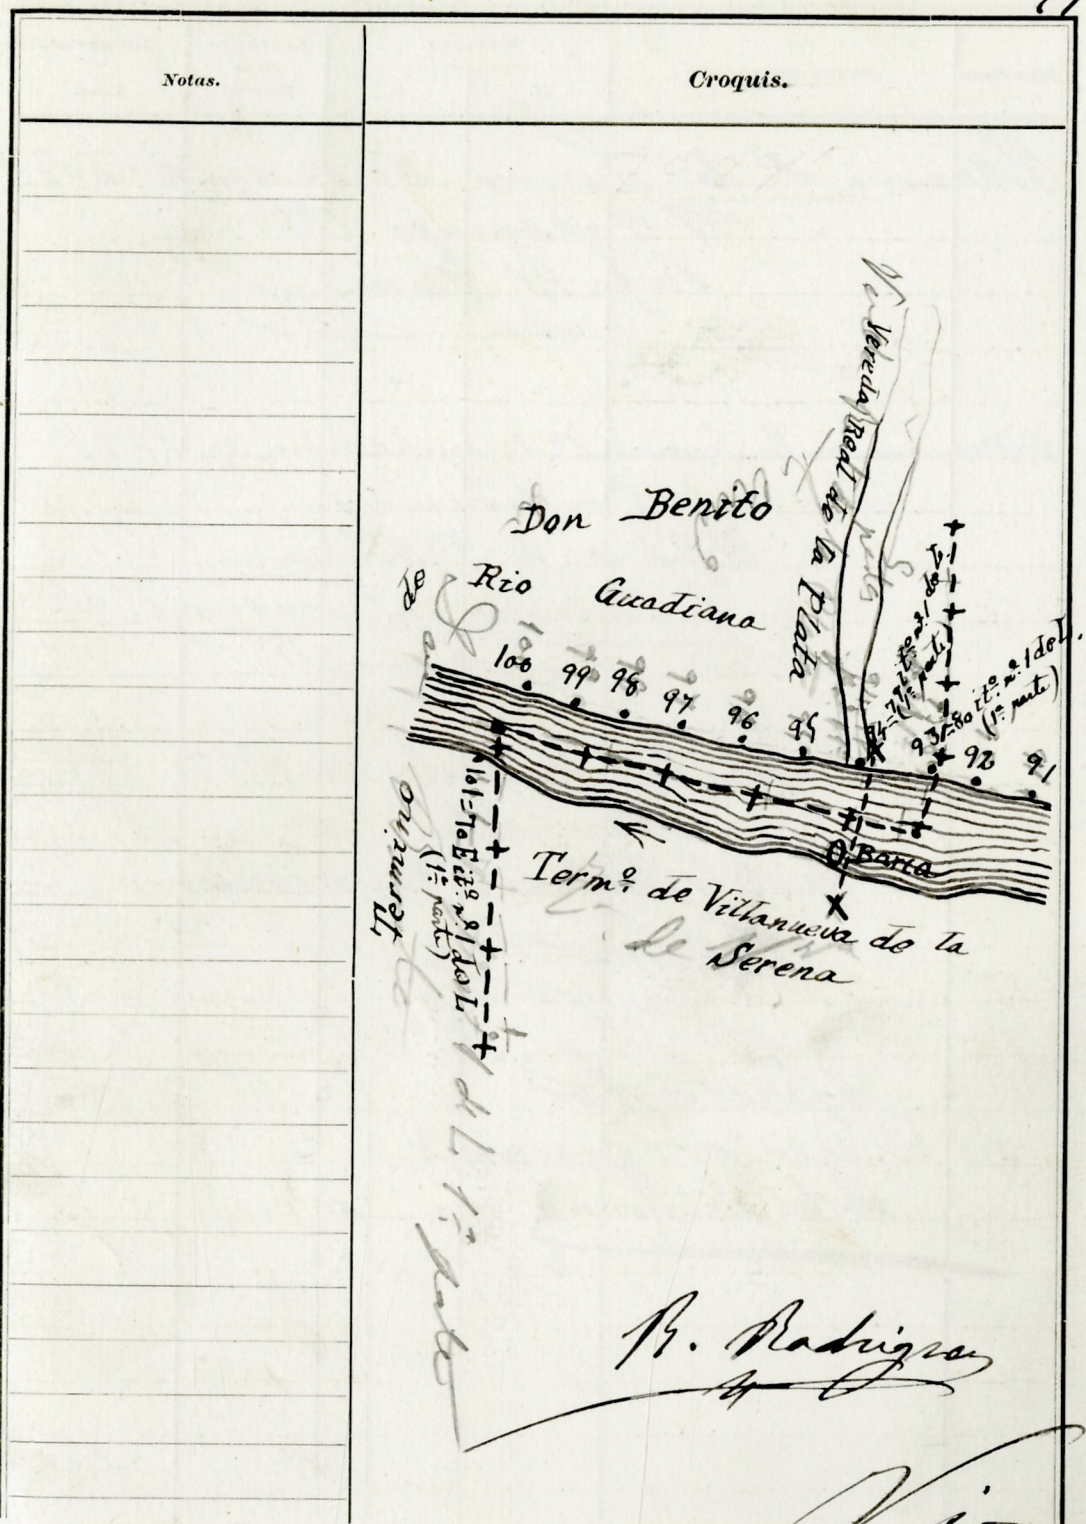 Notas.
Croquis.
Vereda Real de la Plata
Don Benito
Rio Guadiana
100 99 98 97 96 95 94=79 itº nº 1 de L (1ª parte)
93=80 itº nº 1 de L. (1ª parte)
92 91
Barca
Termino de
101=70E itº nº 1 de L
(1ª parte)
Termº de Villanueva de la
Serena
1 de L 1ª parte
R. Rodrigez